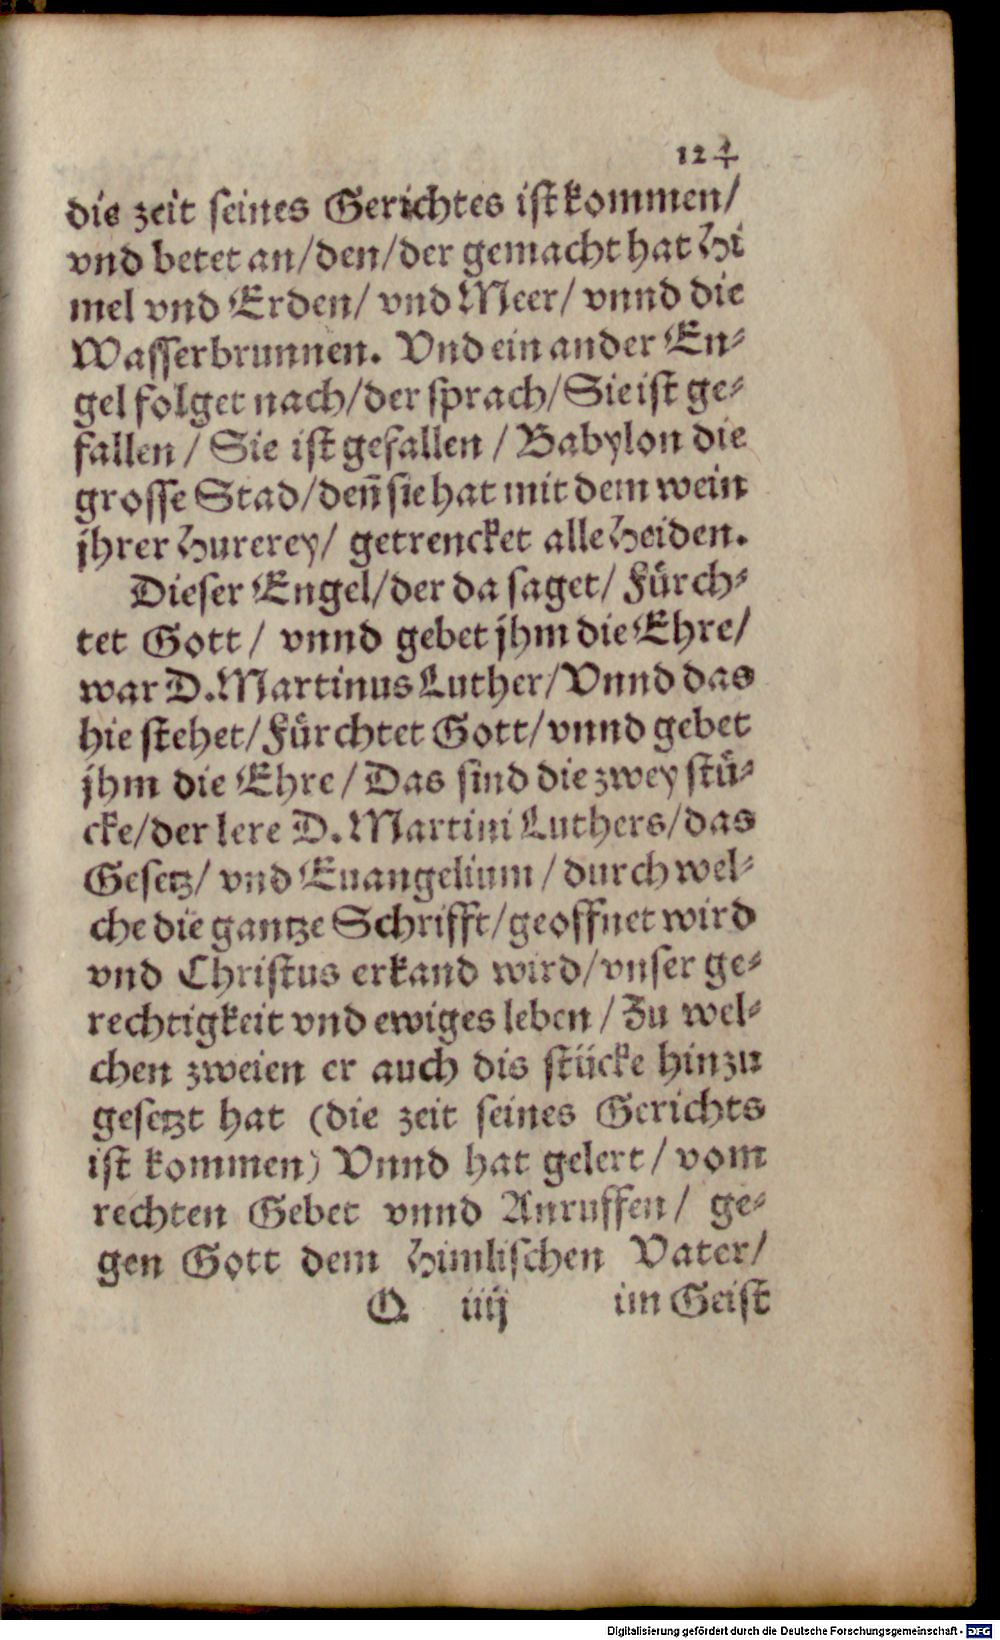 124
die zeit seines Gerichtes ist kommen/
vnd betet an/den/der gemacht hat Hi
mel vnd Erden/ vnd Meer/ vnnd die
Wasserbrunnen. Vnd ein ander En⸗
gel folget nach/der sprach/Sie ist ge⸗
fallen / Sie ist gefallen / Babylon die
grosse Stad/deñ sie hat mit dem wein
jhrer Hurerey/ getrencket alle Heiden.
Dieser Engel/der da saget/ Fürch⸗
tet Gott/ vnnd gebet jhm die Ehre/
war D. Martinus Luther/Vnnd das
hie stehet/Fürchtet Gott/vnnd gebet
jhm die Ehre/Das sind die zwey stü⸗
cke/der lere D. Martini Luthers/das
Gesetz/ vnd Euangelium/durch wel⸗
che die gantze Schrifft/geoffnet wird
vnd Christus erkand wird/vnser ge⸗
rechtigkeit vnd ewiges leben/Zu wel⸗
chen zweien er auch dis stücke hinzu
gesetzt hat (die zeit seines Gerichts
ist kommen) Vnnd hat gelert/vom
rechten Gebet vnnd Anruffen/ ge⸗
gen Gott dem Himlischen Vater/
Q iiij im Geist
Digitalisierung gefördert durch die Deutsche Forschungsgemeinschaft - DFG